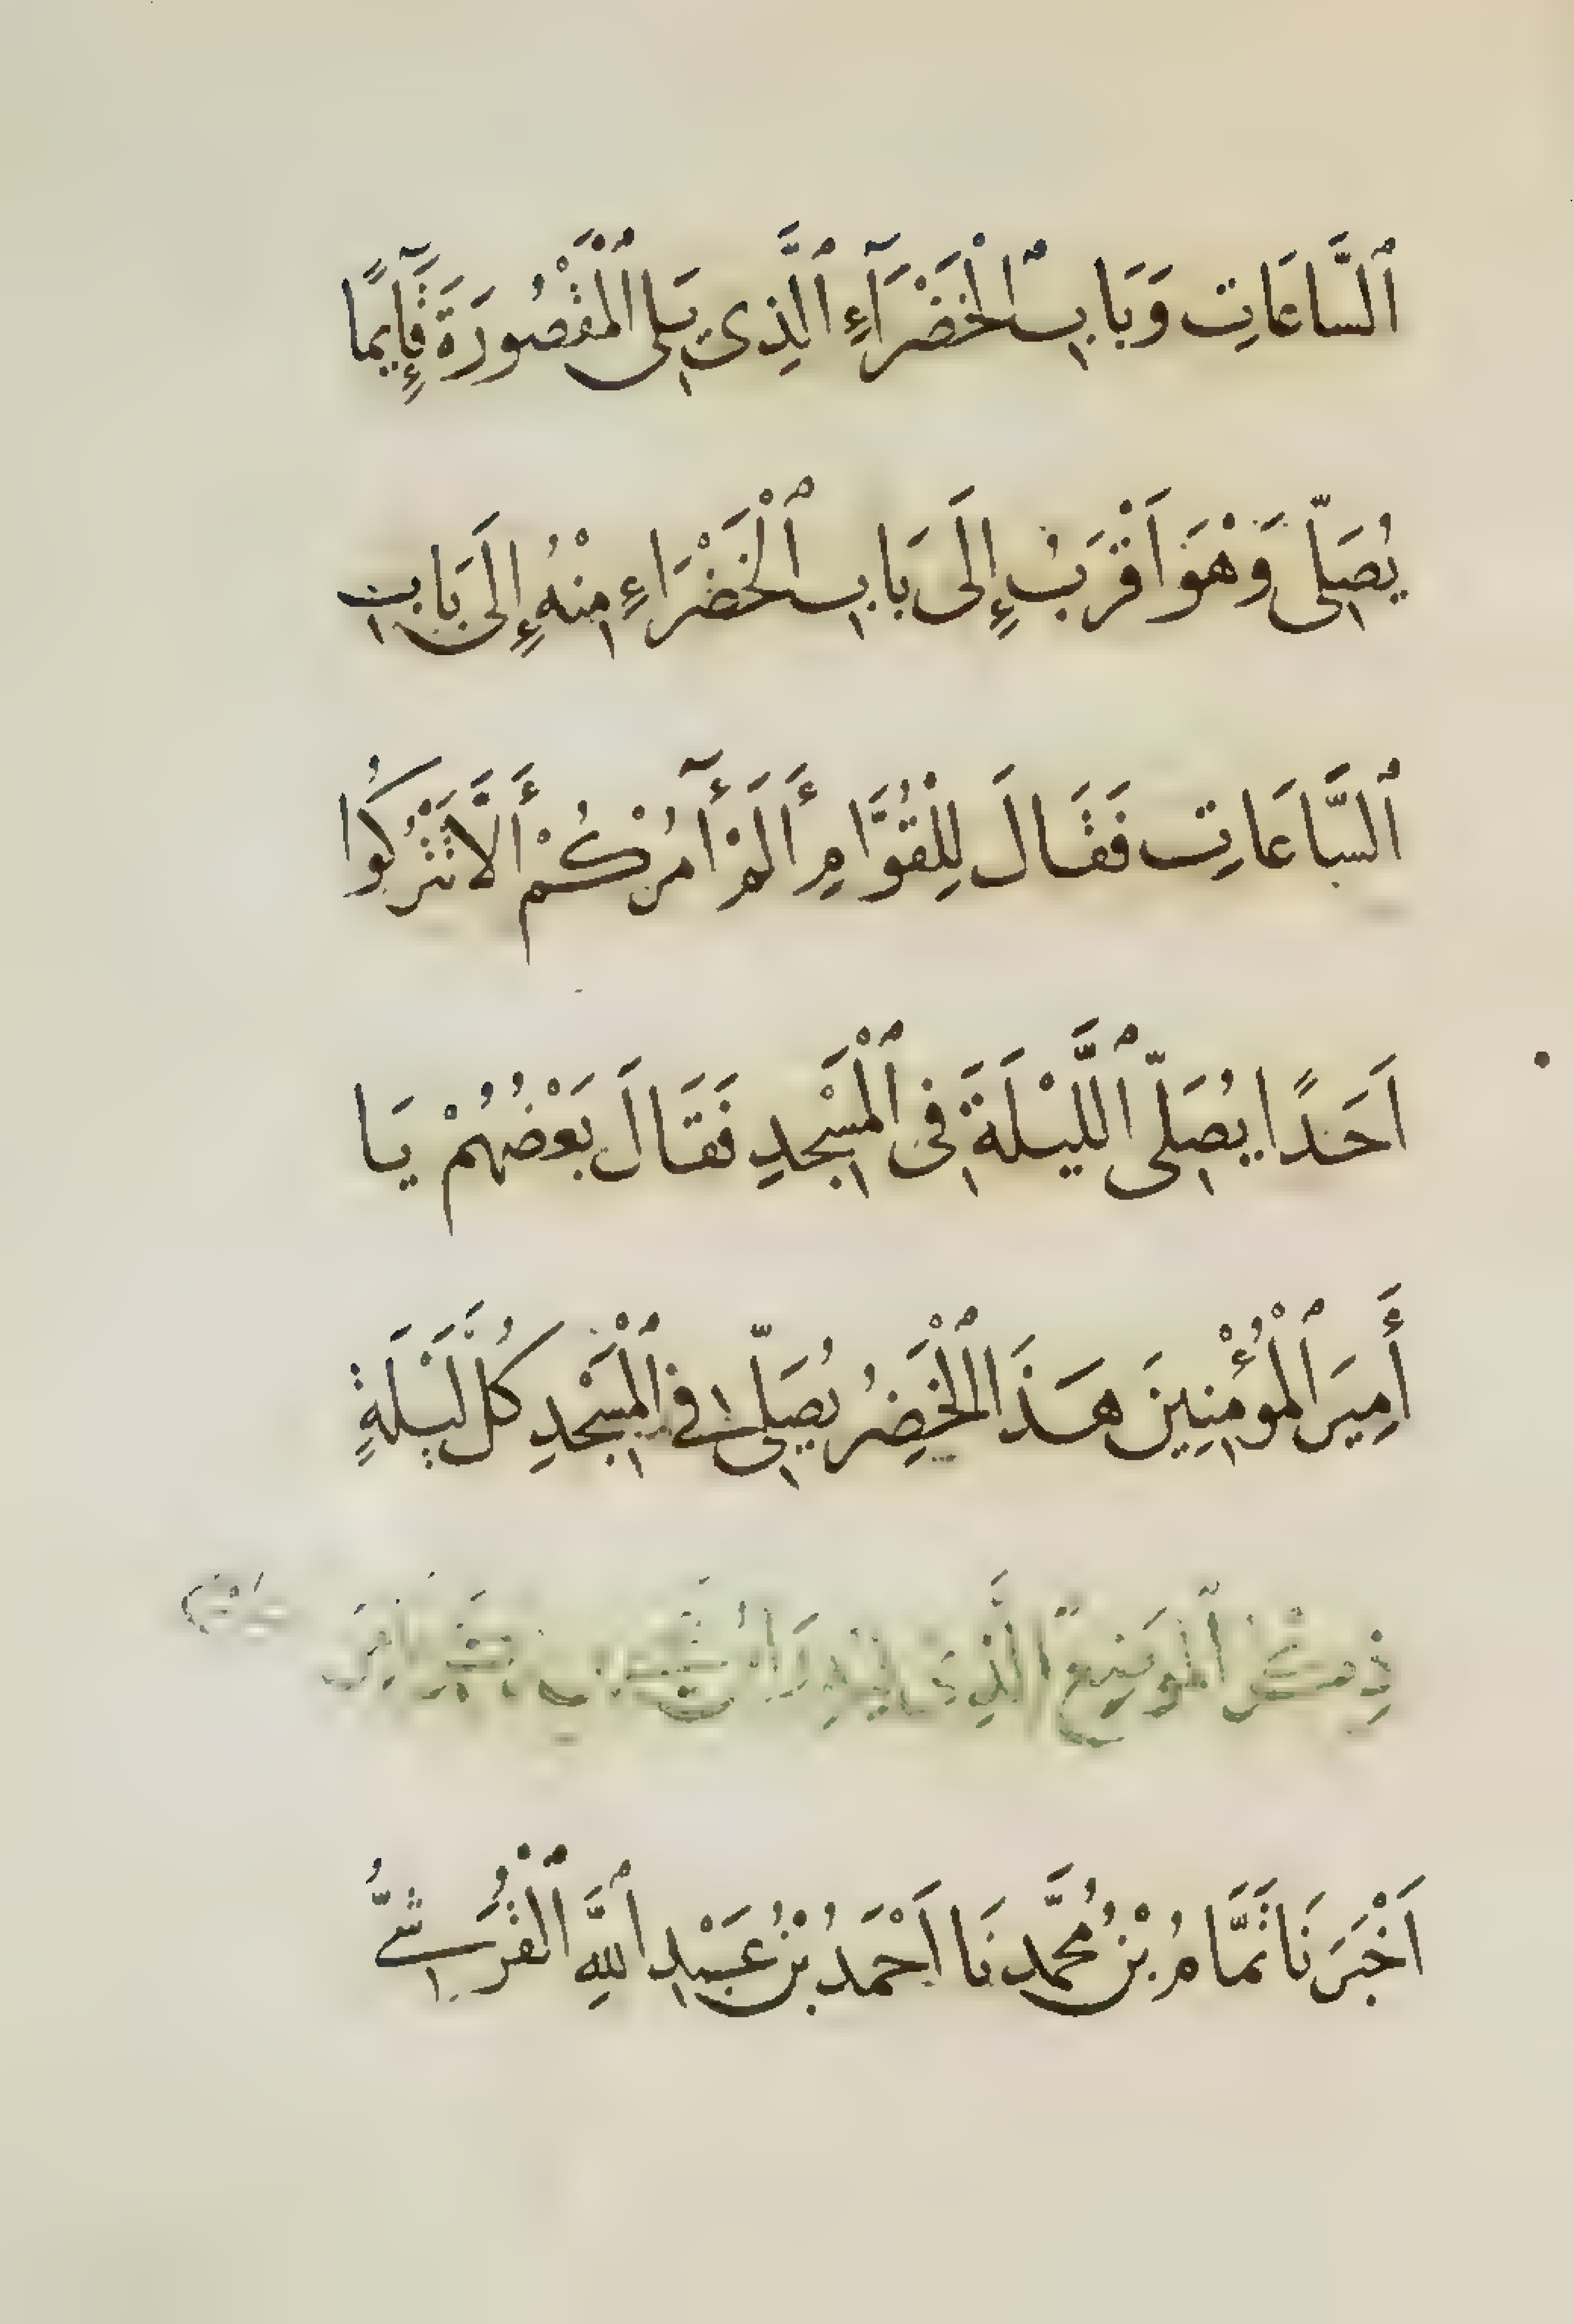 ٱلسَّاعَاتِ وَبَابِ ٱلْخَضْرَآءِ ٱلَّذِى يَلِى ٱلْمَقْصُورَةَ قَآئِمًا
يُصَلِّى وَهْوَ اَقْرَبُ إِلَى بَابِ ٱلْخَضْرَاءِ مِنْهُ إِلَى بَابِ
ٱلسَّاعَاتِ فَقَالَ لِلْقُوَّامِ أَلَمْ أَآمُرْكُمْ أَلَّا تَتْرُكُوا
اَحَدًا يُصَلِّى ٱللَّيْلَةَ فِى ٱلْمَسْجِدِ فَقَالَ بَعْضُهُمْ يَا
أَمِيرَ ٱلْمُؤْمِنِينَ هَذَا ٱلْخَضِرُ يُصَلِّى فِى ٱلْمَسْجِدِ كُلَّ لَيْلَةٍ
ذِكْرُ ٱلْمَوْضِعِ ٱلَّذِى فِيهِ رَأْسُ
اَخْبَرَنَا تَمَّامُ بْنُ مُحَمَّدٍ نَا اَحْمَدُ بْنُ عَبْدِ ٱللَّهِ ٱلْقُرَشِىُّ